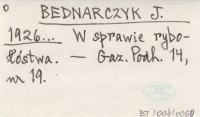 BEDNARCZYK J.
1926... W sprawie rybo-
łóstwa. — Gaz. Podh. 14,
nr 19.